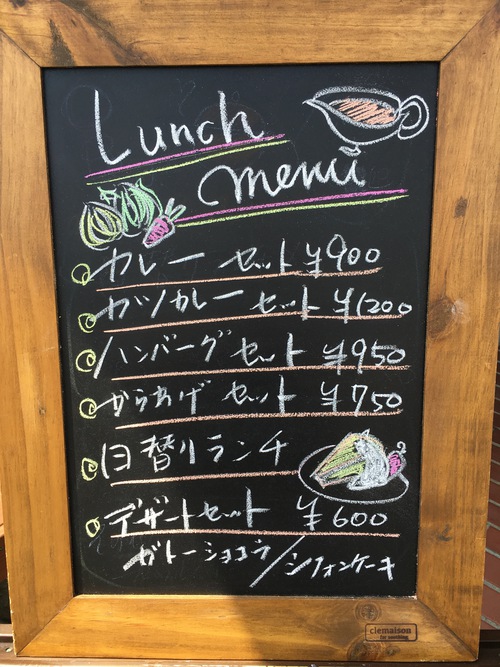 Lunch
menu
カレーセット ¥900
カツカレーセット ¥1200
ハンバーグセット ¥950
からあげセット ¥750
日替りランチ
デザートセット ¥600
ガトーショコラ/シフォンケーキ
ciemaison